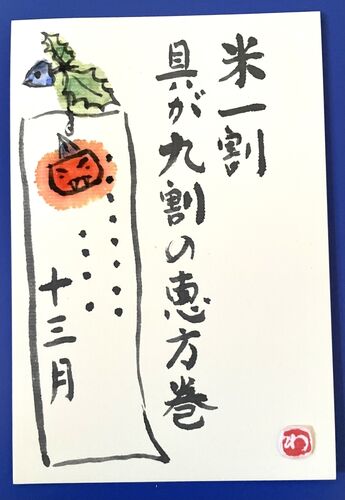 米一割
具が九割の恵方巻
十三月
わ